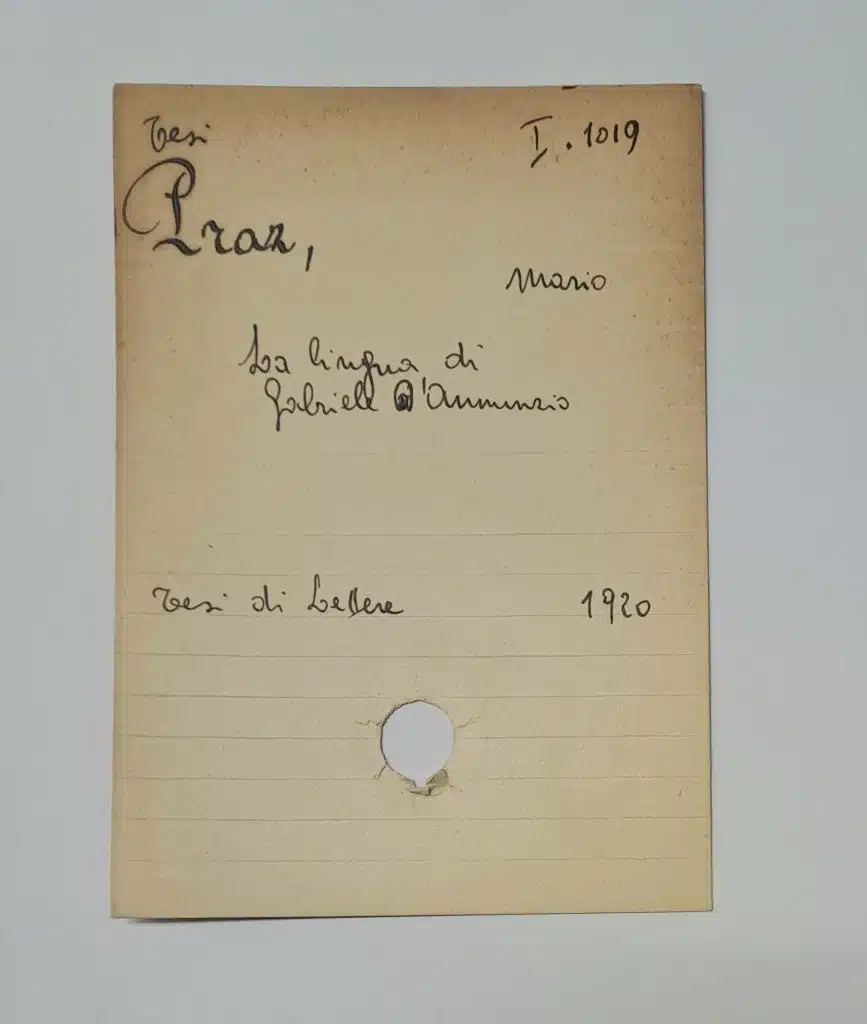 Tesi
I. 1019
Praz,
Mario
La lingua di
Gabriele D'Annunzio
Tesi di Lettere 1920